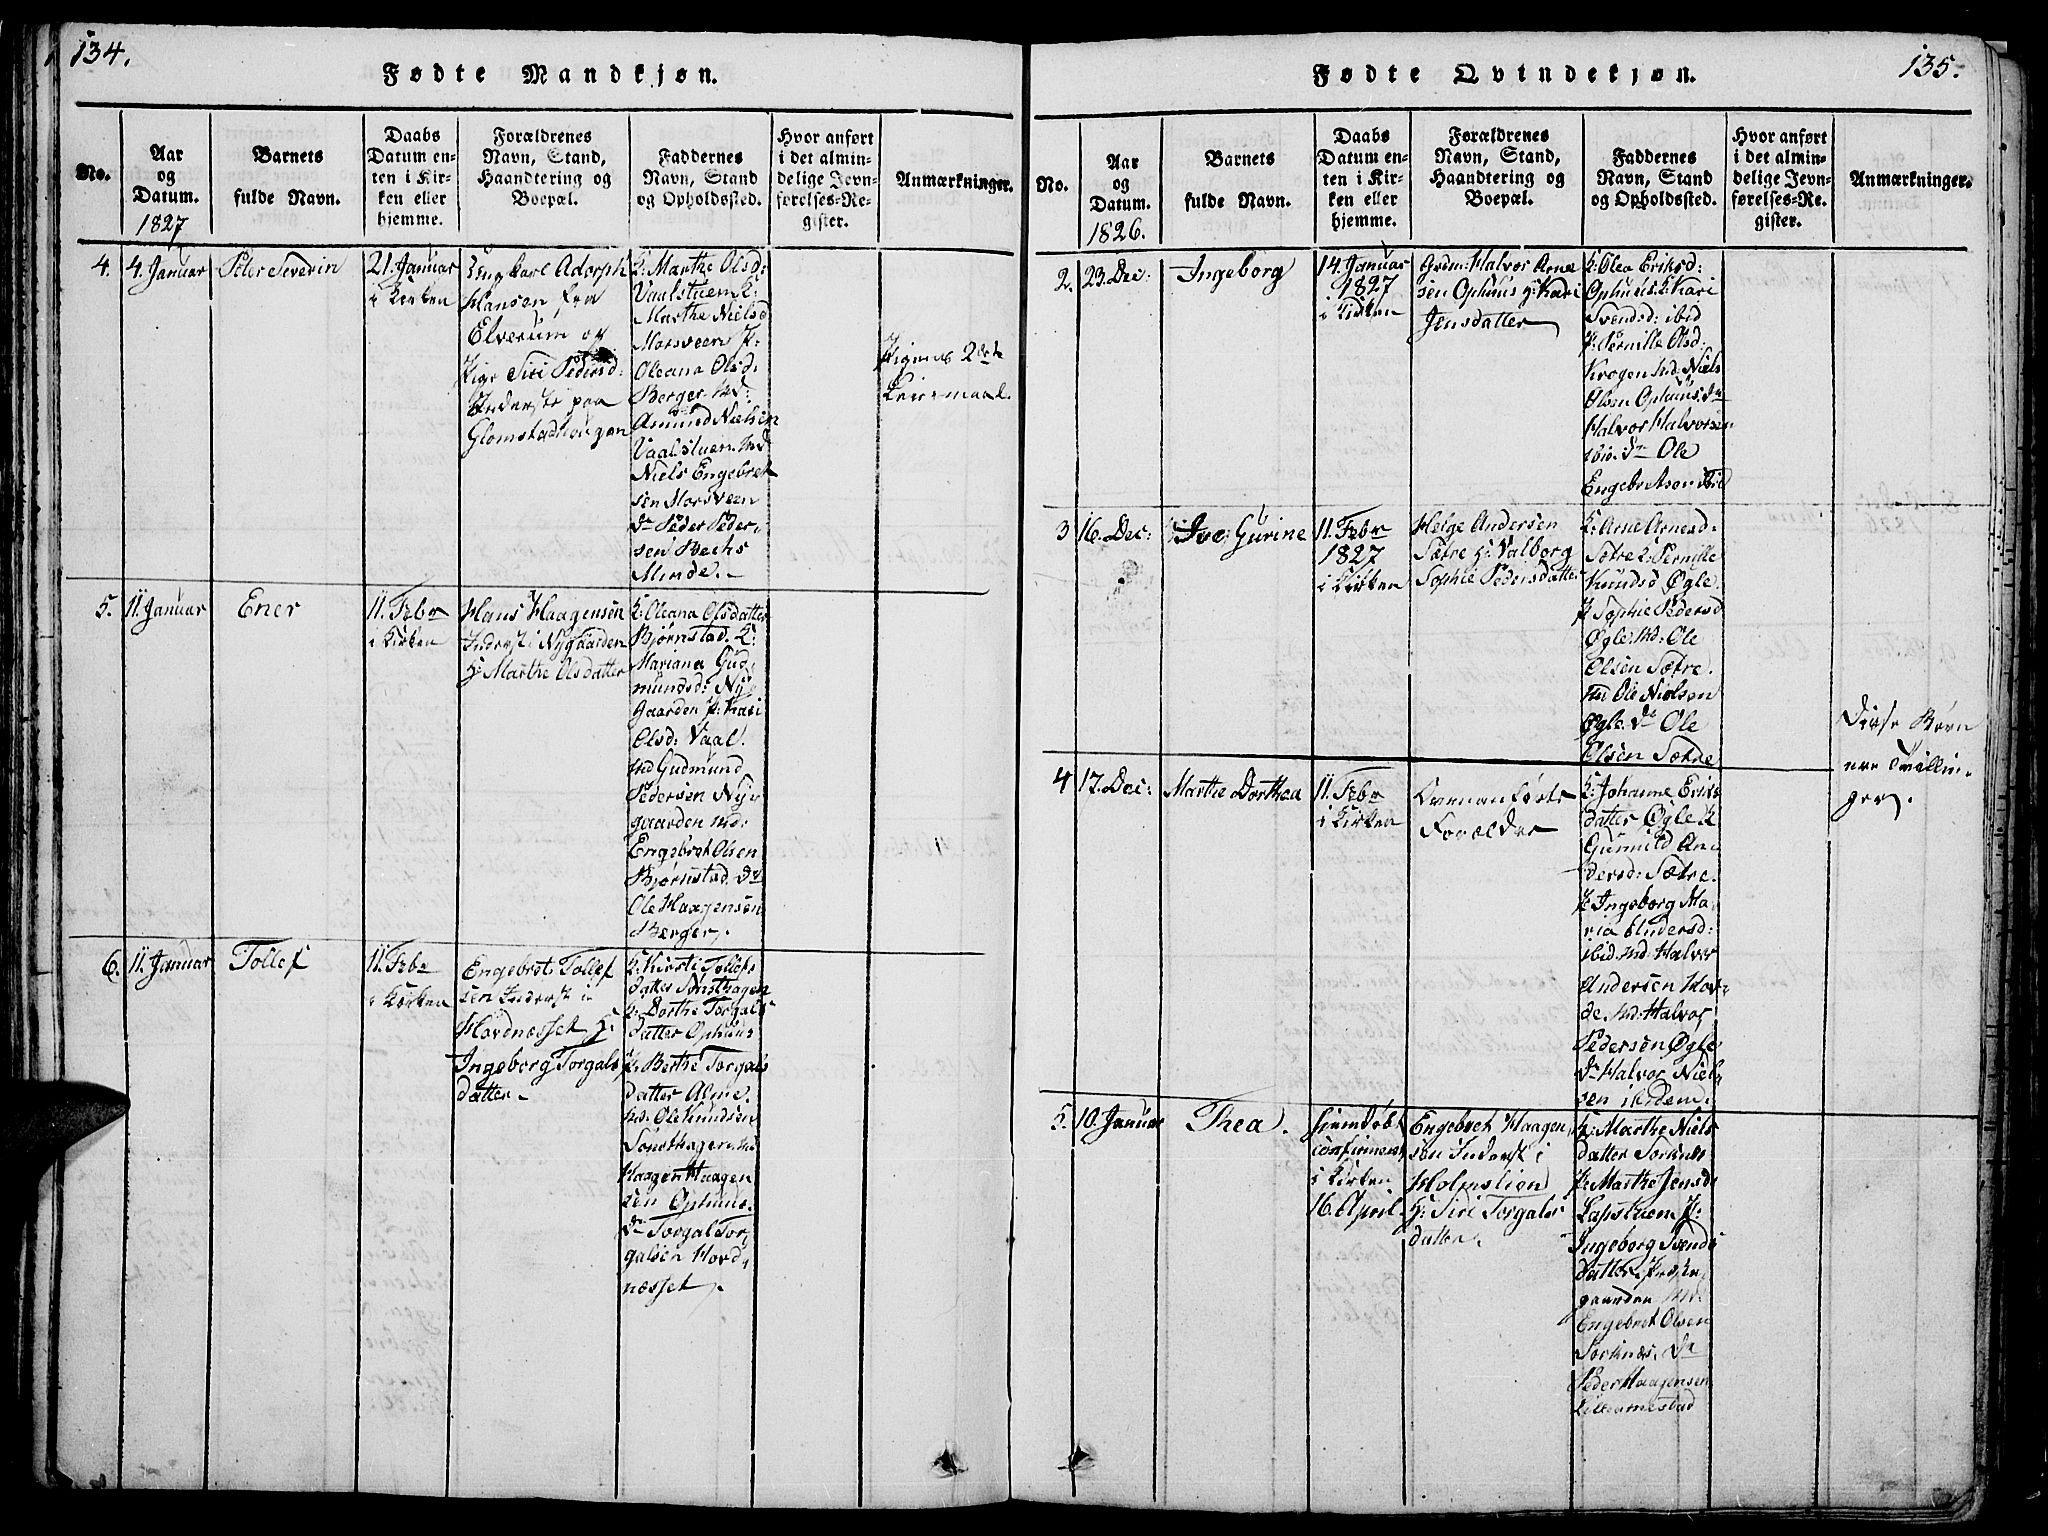 134.
Fødte Mandkjøn.
No.
Aar
og
Datum.
1827
Barnets
fulde Navn.
Daabs
Datum en-
ten i Kir-
ken eller
hjemme.
Forældrenes
Navn, Stand,
Haandtering og
Boepæl.
Faddernes
Navn, Stand
og Opholdssted.
Hvor anført
i det almin-
delige Jevn-
førelses-Re-
gister.
Anmærkninger.
4.
4. Januar
Peter Severin
21. Januar
i Kirken
Ung Karl Adorph
Hansen fra
Elverum og
Pige Siri Pedersd:
Inderste paa
Glomstadhougen
K: Marthe Olsd:
Vaalstuen K:
Marthe Nielsd
Morsveen P:
Oleana Olsd:
Berger. Md:
Asmund Nielsen
Vaalstuen. Md
Niels Engebret
sen Morsveen
Dr Peder Peder-
sen Bechs
Minde.
Pigens 2det
Leiermaal.
5.
11. Januar
Ener
11. Febr
i Kirken
Hans Haagensen
Inderst i Nygaarden
H: Marthe Olsdatter
K: Oleana Olsdatter
Bjørnstad. K:
Mariana Gud-
mundsd: Ny-
gaarden P: Kari
Olsd: Vaal.
Md Gudmund
Pedersen Ny-
gaarden Md:
Engebret Olsen
Bjørnstad. Dr
Ole Haagensen
Berger.
6.
11. Januar
Tollef
11. Febr
i Kirken
Engebret Tollef
sen Inderst i
Hovdnæsset H:
Ingeborg Torgals
datter.
K: Kirsti Tollefs
datter Sønsthagen
K: Dorthe Torgals
datter Ophuus
P: Berthe Torgals
datter Alme.
Md: Ole Knudsen
Sønsthagen. Md
Haagen Haagen
sen Ophuus.
Dr Torgal Tor-
galsen Hovd-
næsset.
135.
Fødte Qvindekjøn.
No.
Aar
og
Datum.
1826.
Barnets
fulde Navn.
Daabs
Datum en-
ten i Kir-
ken eller
hjemme.
Forældrenes
Navn, Stand,
Haandtering og
Boepæl.
Faddernes
Navn, Stand
og Opholdssted.
Hvor anført
i det almin-
delige Jevn-
førelses-Re-
gister.
Anmærkninger.
2.
23. Dec:
Ingeborg
14. Januar
1827
i Kirken
Grdm: Halvor Arne
sen Ophuus H: Kari
Jensdatter
K: Olea Eriksd:
Ophuus. K: Kari
Svendsd: ibid
P: Pernille Olsd:
Krogen Md: Niels
Olsen Ophuus. Dr
Halvor Halvorsen
ibid. Dr Ole
Engebretsen ibid
3
16. Dec:
Gurine
11. Febr
1827
i Kirken
Helge Andersen
Sætre H: Valborg
Sophie Pedersdatter
K: Arne Arnesd:
Sætre K: Pernille
Knudsd Øgle.
P Sophie Pedersd
Øgle: Md: Ole
Olsen Sætre.
Md Ole Nielsen
Øgle. Dr Ole
Olsen Sætre
Disse Børn
ere Tvillin-
ger.
4
17. Dec:
Marthe Dorthea
11. Febr
i Kirken
Ovenanførte
Forældre
K: Johanne Eriks
datter Øgle K
Gunnild An-
dersd: Sætre.
P: Ingeborg Ma-
ria Andersd:
ibid Md: Halvor
Andersen Hov-
de. Md: Halvor
Pedersen Øgle
Dr Halvor Niel-
sen ibidem.
5.
10. Januar
Thea.
hjemdøbt
confirmeret
i Kirken
16. April.
Engebret Haagen
sen Inderst i
Holmslien
H: Siri Torgals
datter.
K: Marthe Niels
datter Sorknæs
K: Marthe Jensd:
Lapstuen P:
Ingeborg Svends
datter Præste-
gaarden Md:
Engebret Olsen
Sorknæs. Dr
Peder Haagensen